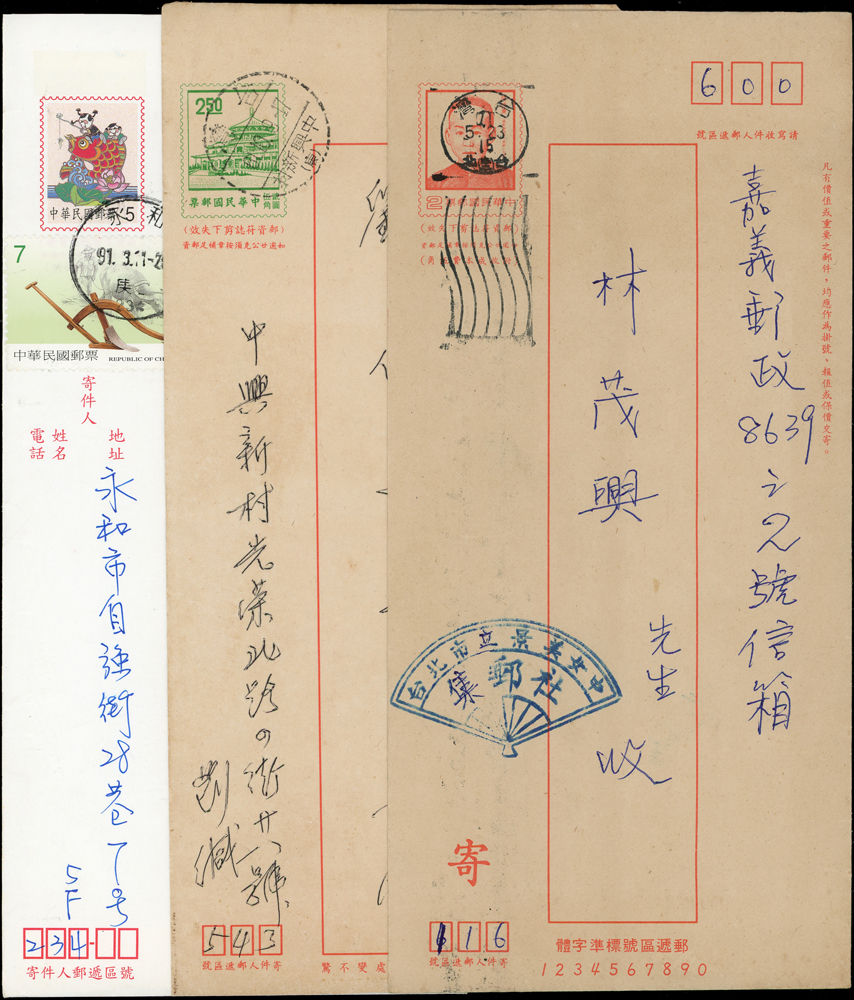 中華民國郵票 5
永和
91. 3.
7
中華民國郵票 REPUBLIC OF CH
寄件人
地址
姓名
電話
永和市自強街28巷7号
5F
234-
寄件人郵遞區號
2 50
票郵國民華中
(效失下剪誌符資郵)
中興新村
中興新村光榮北路四街廿八號
劉緘
543
號區遞郵人件寄
驚不變處
2 票郵國民華中
台灣
5.23
15
600
號區遞郵人件收寫請
凡有價值或重要之郵件，均應作為掛號、報值或保價交寄。
嘉義郵政8639之2號信箱
林茂興 先生 收
台北市立景美女中
集郵社
寄
116
號區遞郵人件寄
體字準標號區遞郵
1234567890